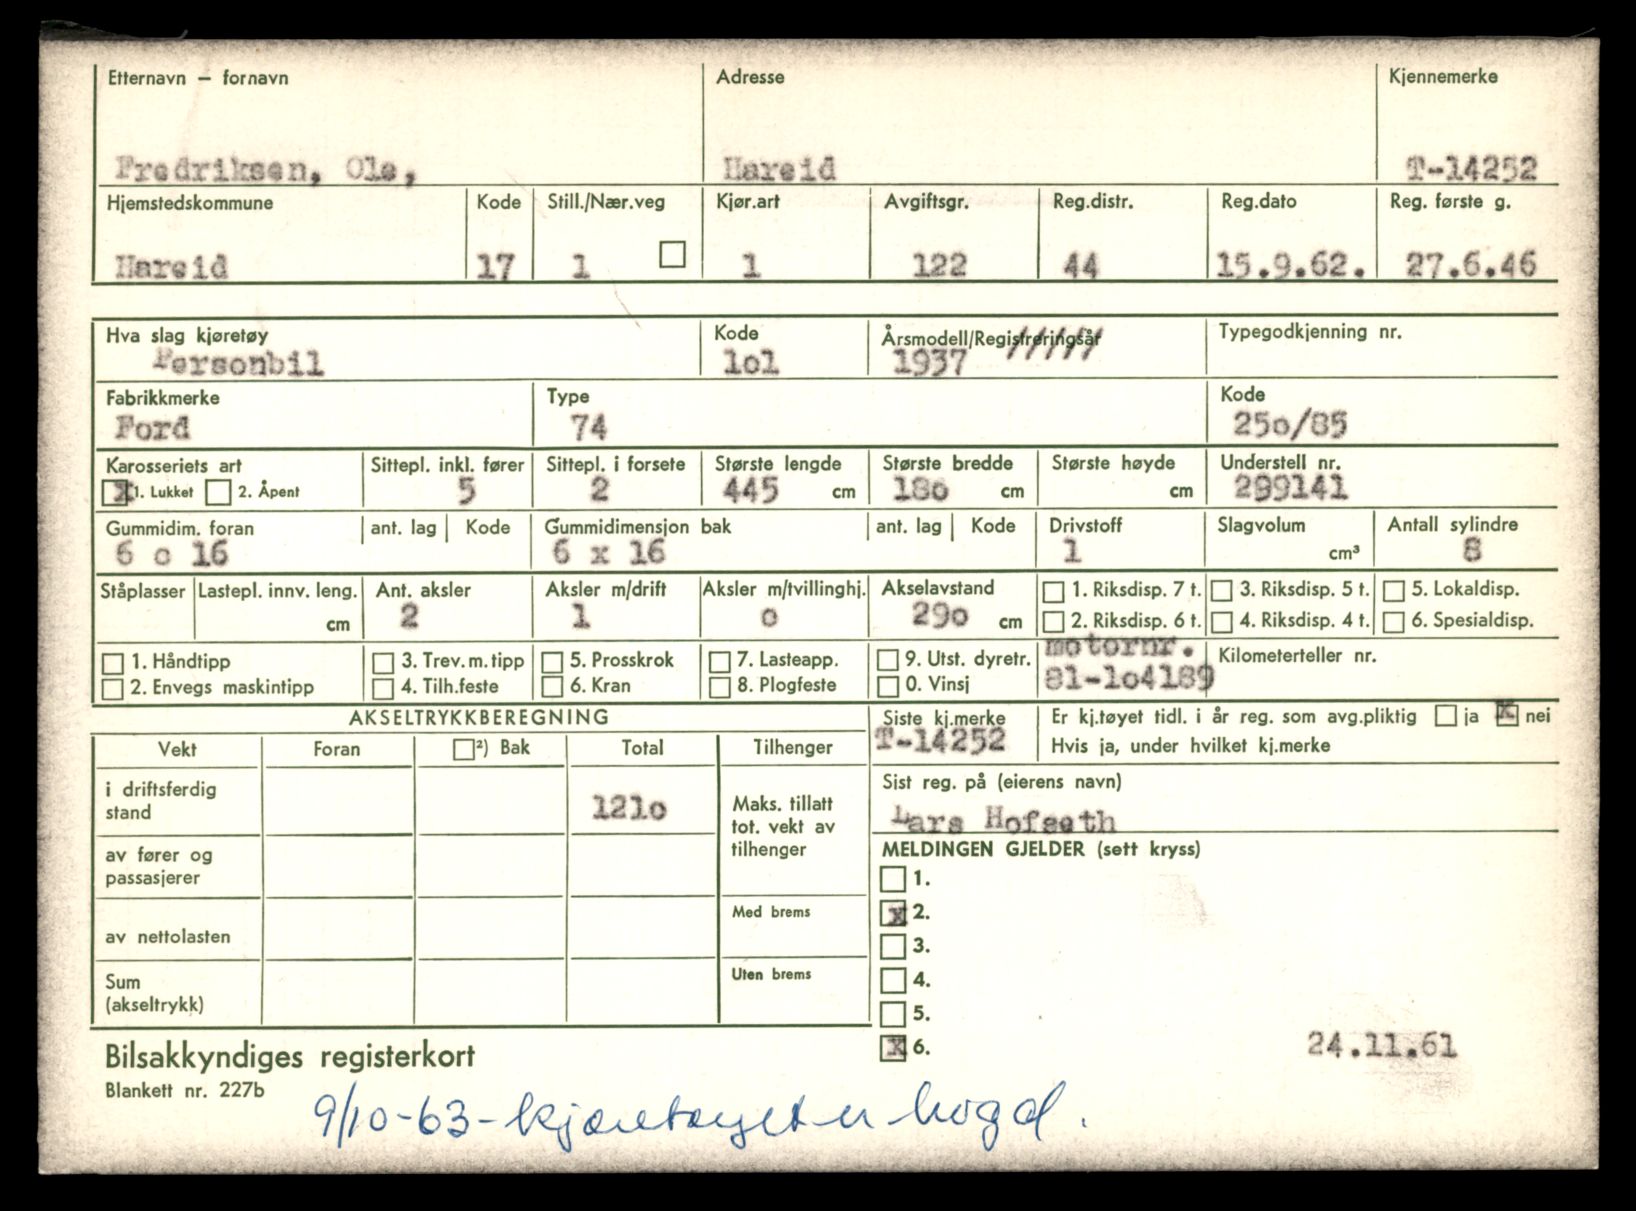 Etternavn — fornavn Adresse Kjennemerke
Fredriksen, Ole, Hareid T-14252
Hjemstedskommune Kode Still./Nær.veg Kjør.art Avgiftsgr. Reg.distr. Reg.dato Reg. første g.
Hareid 17 1 1 122 44 15.9.62. 27.6.46
Hva slag kjøretøy Kode Årsmodell/Registreringsår Typegodkjenning nr.
Personbil lol 1937 /////
Fabrikkmerke Type Kode
Ford 74 25o/85
Karosseriets art Sittepl. inkl. fører Sittepl. i forsete Største lengde Største bredde Største høyde Understell nr.
x 1. Lukket 2. Åpent 5 2 445 cm 18o cm cm 299141
Gummidim. foran ant. lag Kode Gummidimensjon bak ant. lag Kode Drivstoff Slagvolum Antall sylindre
6 o 16 6 x 16 1 cm³ 8
Ståplasser Lastepl. innv. leng. Ant. aksler Aksler m/drift Aksler m/tvillinghj. Akselavstand 1. Riksdisp. 7 t. 3. Riksdisp. 5 t. 5. Lokaldisp.
cm 2 1 o 29o cm 2. Riksdisp. 6 t. 4. Riksdisp. 4 t. 6. Spesialdisp.
1. Håndtipp 3. Trev. m. tipp 5. Prosskrok 7. Lasteapp. 9. Utst. dyretr. motornr. Kilometerteller nr.
2. Envegs maskintipp 4. Tilh.feste 6. Kran 8. Plogfeste 0. Vinsj 81-lo4189
AKSELTRYKKBEREGNING Siste kj.merke Er kj.tøyet tidl. i år reg. som avg.pliktig ja x nei
Vekt Foran ²) Bak Total Tilhenger T-14252 Hvis ja, under hvilket kj.merke
i driftsferdig stand 121o Maks. tillatt tot. vekt av tilhenger Sist reg. på (eierens navn)
Lars Hofseth
av fører og passasjerer MELDINGEN GJELDER (sett kryss)
1.
Med brems x 2.
av nettolasten 3.
Sum (akseltrykk) Uten brems 4.
5.
Bilsakkyndiges registerkort x 6. 24.11.61
Blankett nr. 227b
9/10-63 - kjøretøyet er hogd.